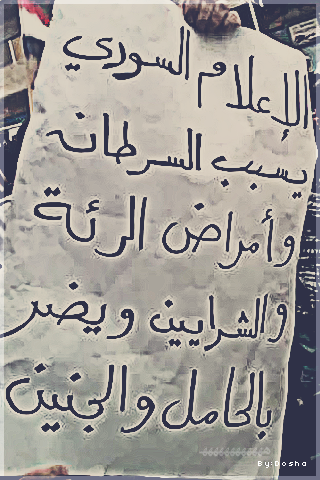 الأعلام السوري
يسبب السرطانه
وأمراض الرئة
والشرايين ويضر
بالحامل والجنين
By:Dosha